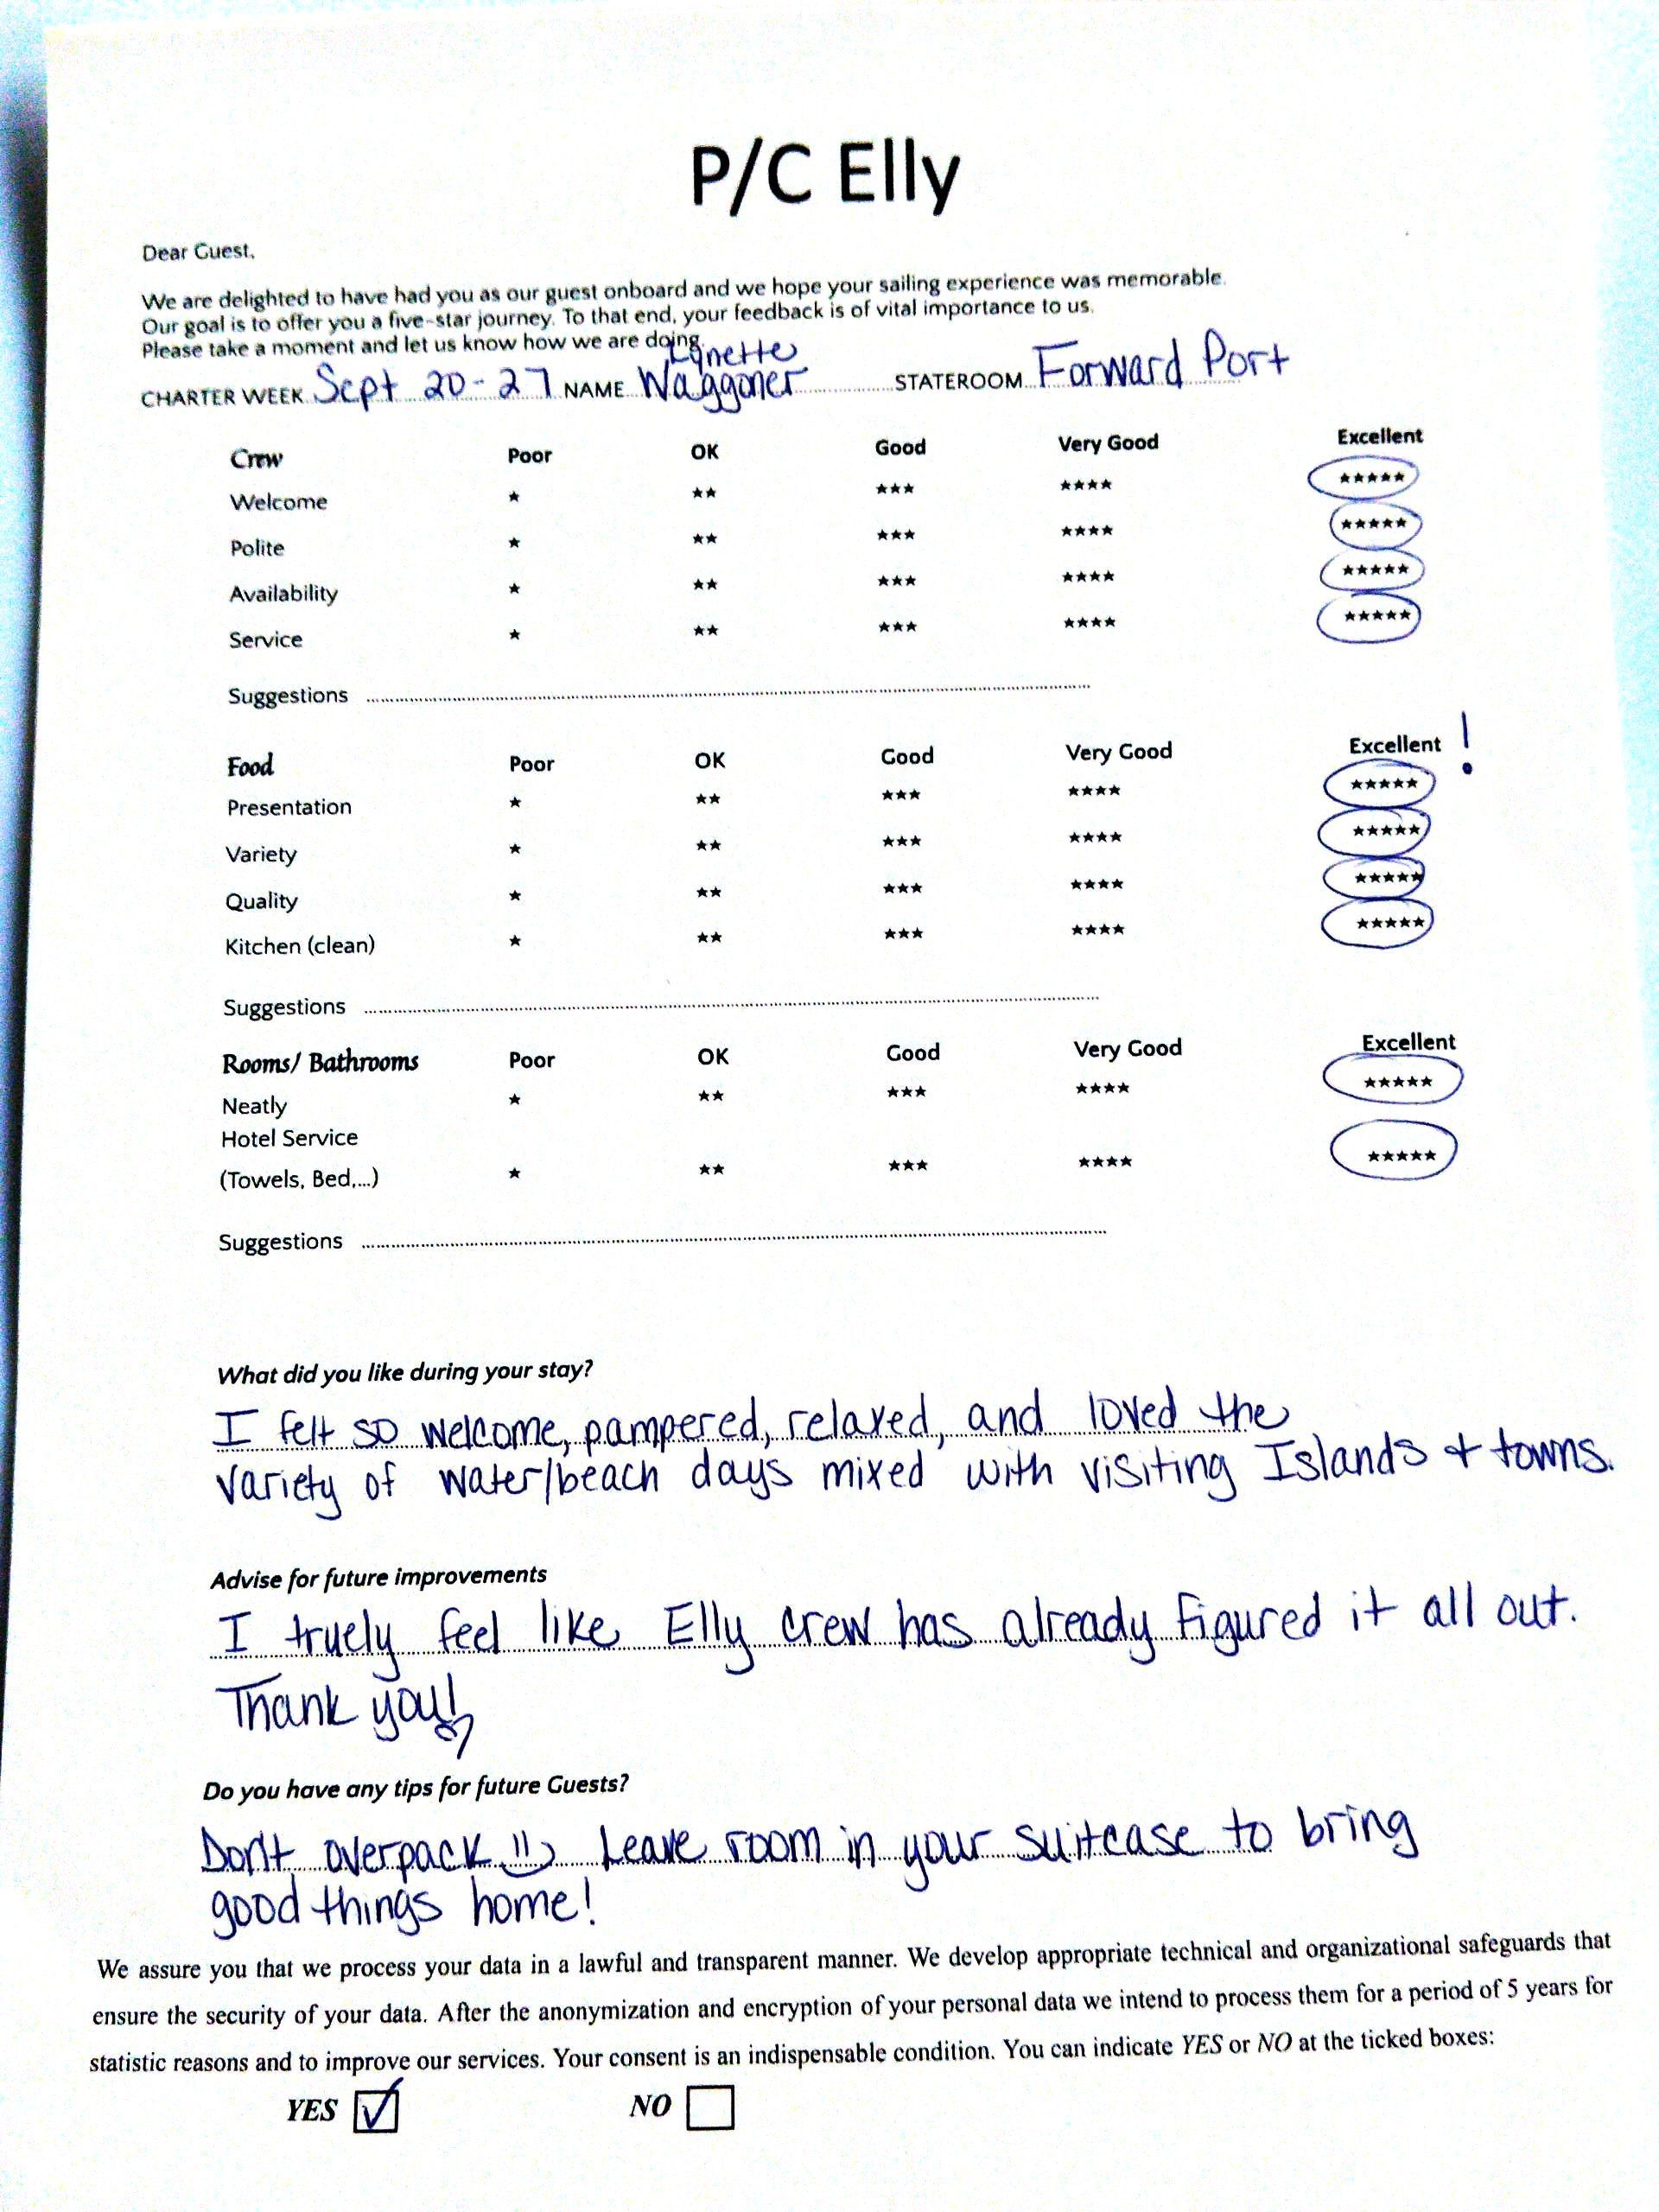 P/C Elly
Dear Guest,
We are delighted to have had you as our guest onboard and we hope your sailing experience was memorable.
Our goal is to offer you a five-star journey. To that end, your feedback is of vital importance to us.
Please take a moment and let us know how we are doing.
CHARTER WEEK Sept 20-27 NAME Lynette Waggoner STATEROOM Forward Port
Crew Poor OK Good Very Good Excellent
Welcome ★ ★★ ★★★ ★★★★ ★★★★★
Polite ★ ★★ ★★★ ★★★★ ★★★★★
Availability ★ ★★ ★★★ ★★★★ ★★★★★
Service ★ ★★ ★★★ ★★★★ ★★★★★
Suggestions
Food Poor OK Good Very Good Excellent !
Presentation ★ ★★ ★★★ ★★★★ ★★★★★
Variety ★ ★★ ★★★ ★★★★ ★★★★★
Quality ★ ★★ ★★★ ★★★★ ★★★★★
Kitchen (clean) ★ ★★ ★★★ ★★★★ ★★★★★
Suggestions
Rooms/ Bathrooms Poor OK Good Very Good Excellent
Neatly ★ ★★ ★★★ ★★★★ ★★★★★
Hotel Service
(Towels, Bed,...) ★ ★★ ★★★ ★★★★ ★★★★★
Suggestions
What did you like during your stay?
I felt so welcome, pampered, relaxed, and loved the
variety of water/beach days mixed with visiting Islands + towns.
Advise for future improvements
I truely feel like Elly crew has already figured it all out.
Thank you!
Do you have any tips for future Guests?
Don't overpack :) Leave room in your suitcase to bring
good things home!
We assure you that we process your data in a lawful and transparent manner. We develop appropriate technical and organizational safeguards that
ensure the security of your data. After the anonymization and encryption of your personal data we intend to process them for a period of 5 years for
statistic reasons and to improve our services. Your consent is an indispensable condition. You can indicate YES or NO at the ticked boxes:
YES ☑ NO ☐